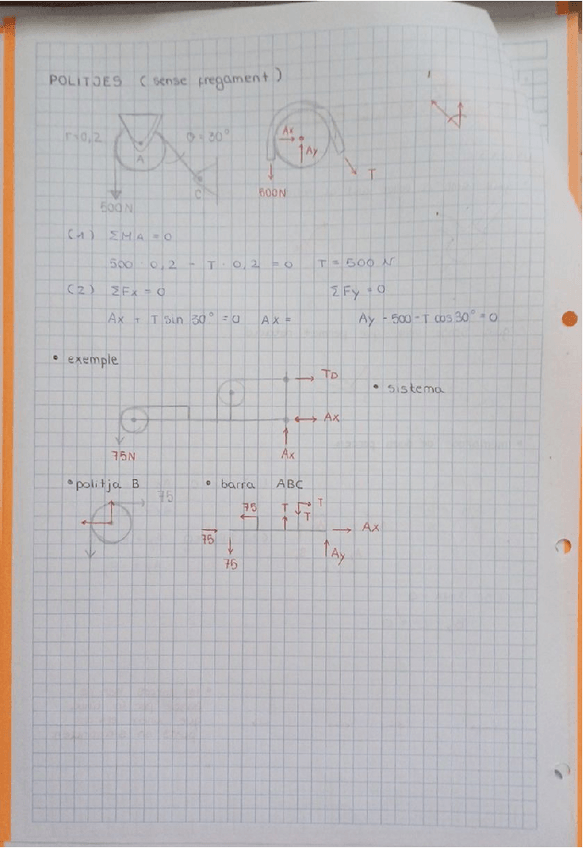 POLITJES (sense fregament)
r=0,2
θ=30°
A
C
500N
Ax
Ay
T
500N
(1) ΣMA=0
500·0,2 - T·0,2 =0 T=500 N
(2) ΣFx=0 ΣFy=0
Ax + T sin 30°=0 Ax= Ay-500-T cos30°=0
• exemple
TD
• sistema
Ax
75N
Ax
• politja B • barra ABC
75
75 T T
T
Ax
75
75
Ay